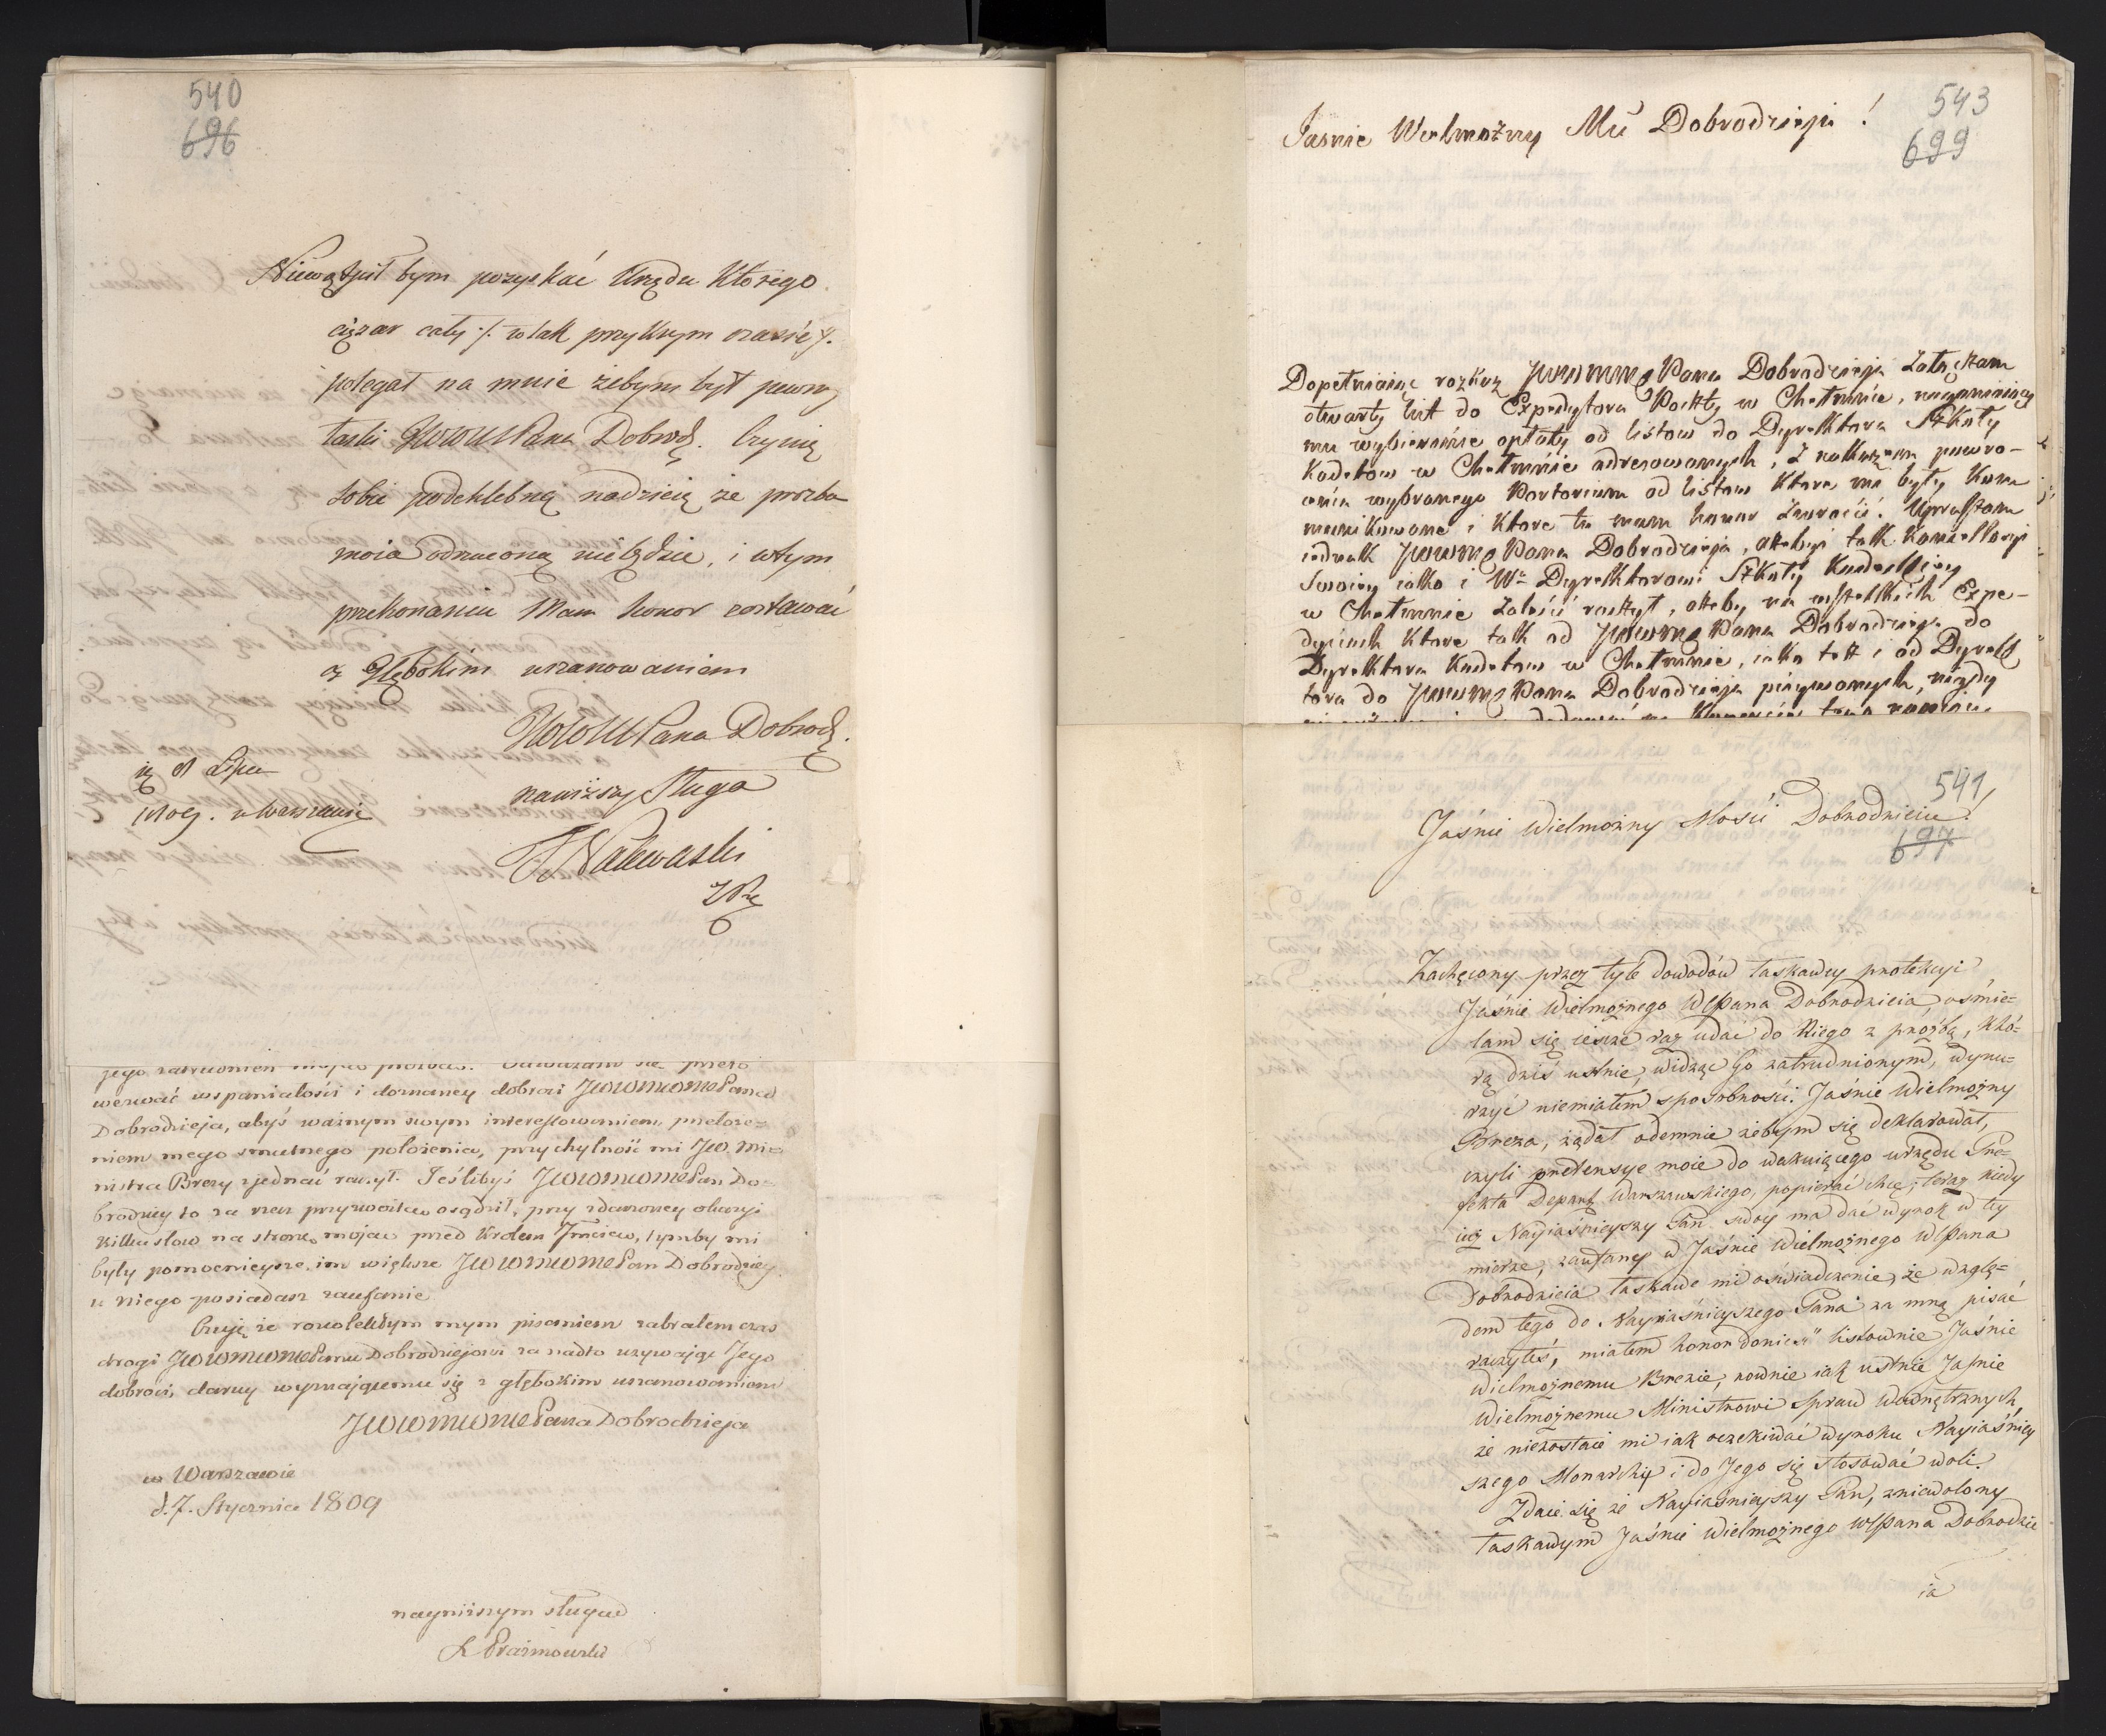 540
696
Niewątpił bym pozyskać Urzędu Którego
ciężar cały ./. w tak przykrym czasie ./.
polegał na mnie żebym był pewny
łaski JWWMPana Dobrodz. Czynię
sobie podchlebną nadzieię że prozba
moia odrzuconą niebędzie, i wtym
przekonaniu Mam honor zostawać
z Głębokim uszanowaniem
JWWMPana Dobrodz.
nayniższy Sługa
Walewski
w Warszawie
jego zatrudnień
wezwać wspaniałości i doznaney dobroci JWWMPana
Dobrodzieja, abyś ważnym swym interessowaniem, przełoże=
niem mego smutnego położenia, przychylność mi JW. Mi=
nistra Brezy zjednać raczył. Jeślibyś JWWMPan Do=
brodziey to za rzecz przyzwoitą osądził, przy zdarzoney okazyi
kilku słow na stronę moją przed Krolem Jmcią, tymby mi
były pomocnieysze, im większe JWWMPan Dobrodziey
u Niego posiadasz zaufanie
Czuję że rozwlekłym mym pisaniem zabrałem czas
drogi JWWMPanu Dobrodziejowi za nadto używając Jego
dobroci, daruy wyznającemu się z głębokim uszanowaniem
JWWMPana Dobrodzieja
w Warszawie
d. 7. Stycznia 1809
nayniższym sługą
Prażmowski
543
699
Jasnie Wielmożny Mci Dobrodzieju !
Dopełniaiąc rozkaz JWWMPana Dobrodzieja załączam
otwarty list do Expedytora Poczty w Chełmnie, naganiaiący
mu wybieranie opłaty od listow do Dyrektora Szkoły
Kadetow w Chełmnie adresowanych, z nakazem powro-
cenia wybranego Portorium od listow ktore mi były kom
munikowane i ktore tu mam honor zwrocić. Upraszam
iednak JWWMPana Dobrodzieja, ażebyś tak Kancellaryi
Swoiey iako i Wu Dyrektorowi Szkoły Kadeckiey
w Chełmnie zalecić raczył, ażeby na wszelkich Expe-
dyciach ktore tak od JWWMPana Dobrodzieja do
Dyrektora Kadetow w Chełmnie, iako też i od Dyrek
tora do JWWMPana Dobrodzieja pisywanych, nigdy
541
697
Jaśnie Wielmożny Mości Dobrodzieiu!
Zachęcony przez tyle dowodów łaskawey protekcyi
Jaśnie Wielmożnego WMPana Dobrodzieia, ośmie=
lam się ieszcze raz udać do Niego z prożbą, któ=
rą dziś ustnie, widząc Go zatrudnionym, wynu=
rzyć niemiałem sposobności. Jaśnie Wielmożny
Breza, żądał odemnie żebym się deklarował,
czyli pretensye moie do wakuiącego urzędu Pre=
fekta Depart. Warszawskiego, popierać chcę; teraz kiedy
iuż Nayiaśnieyszy Pan swoy ma dać wyrok w tey
mierze, zaufany w Jaśnie Wielmożnego WMPana
Dobrodzieia łaskawe mi oświadczenie, że wzglę=
dem tego do Nayiaśnieyszego Pana za mną pisać
raczyłeś, miałem honor donieść listownie Jaśnie
Wielmożnemu Brezie, rownie iak ustnie Jaśnie
Wielmożnemu Ministrowi Spraw Wewnętrznych
że niezostaie mi iak oczekiwać wyroku Nayiaśniey
szego Monarchy i do Jego się stosować woli.
Zdaie się że Nayiaśnieyszy Pan, zniewolony
łaskawym Jaśnie Wielmożnego WMPana Dobrodzie
ia